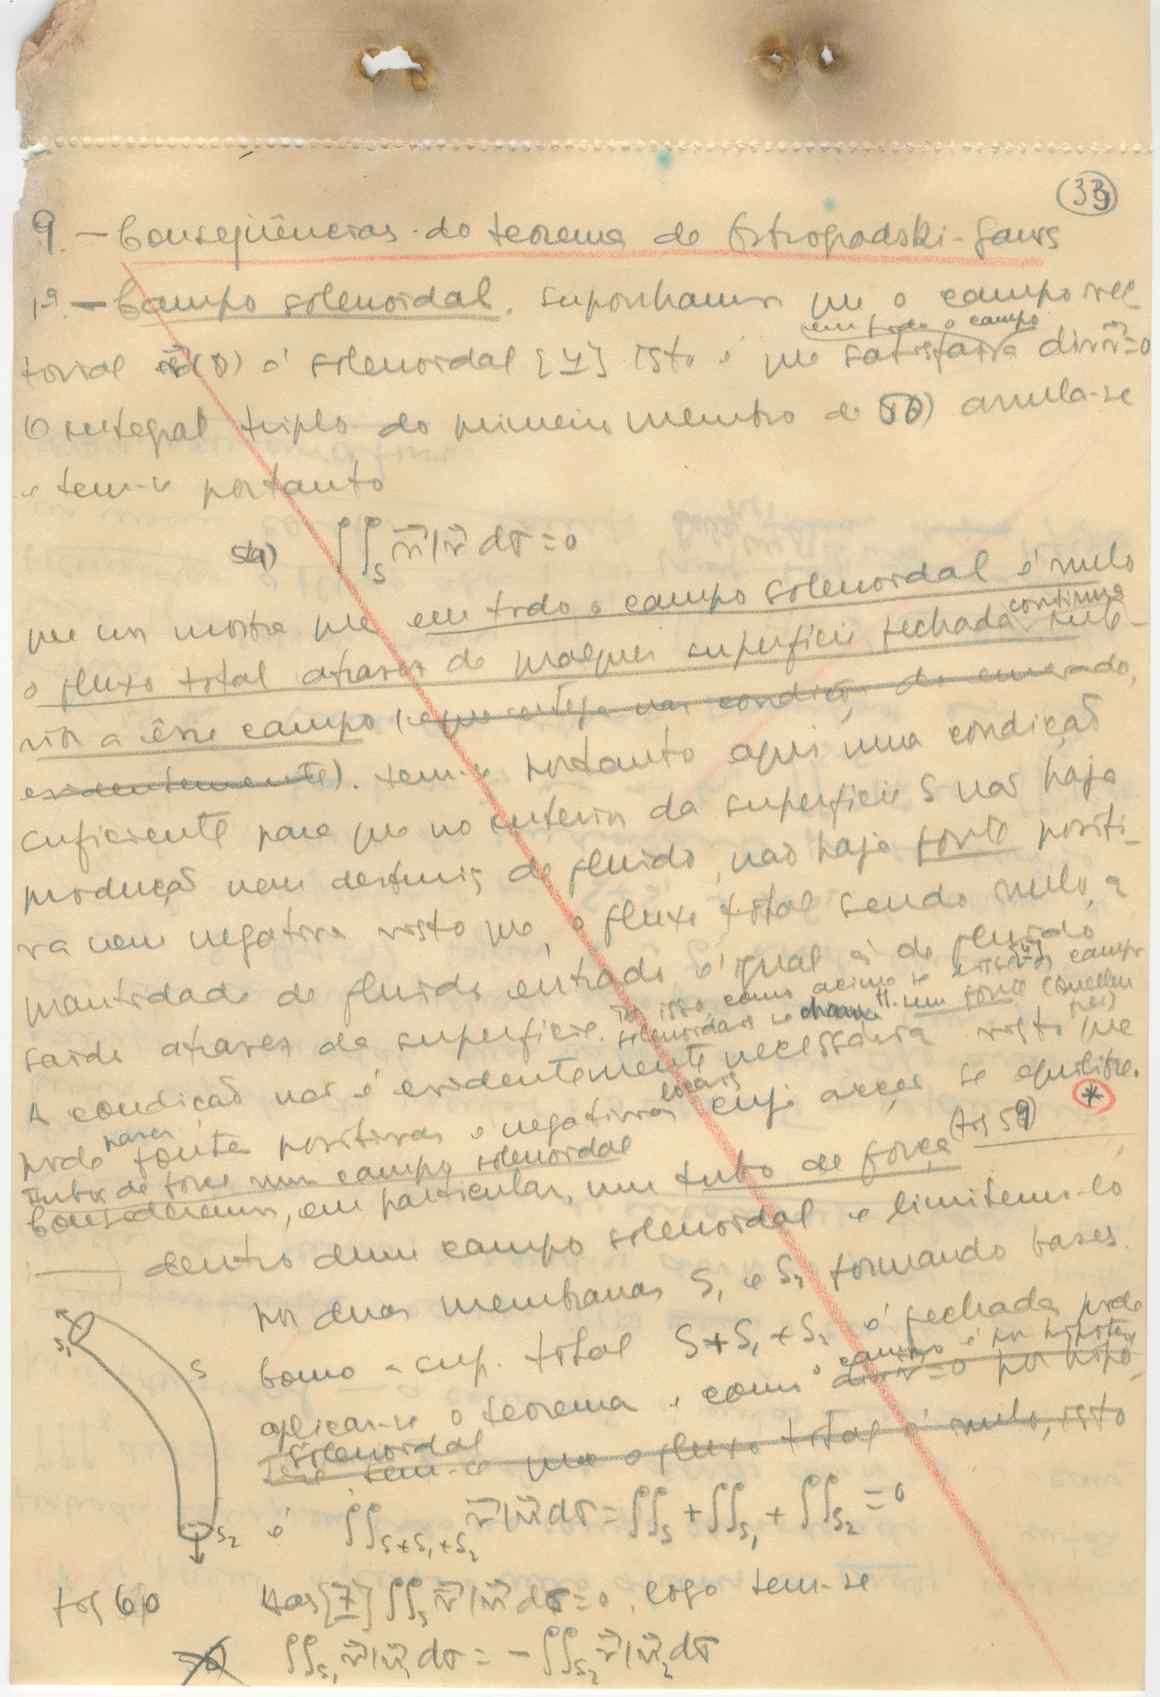 39
9. — Conseqüências do teorema de Ostrogradski-Gauss
1º. — Campo solenoidal. Suponhamos que o campo vec-
em todo o campo
torial v(P) é solenoidal [4] isto é que satisfaz a div v=0
O integral triplo do primeiro membro de anula-se
e tem-se portanto
∬_S v⃗|n⃗ dσ = 0
que nos mostra que em todo o campo solenoidal é nulo
continua
o fluxo total através de qualquer superfície fechada inte-
rior a êsse campo (e que esteja nas condições do enunciado,
evidentemente). Tem-se portanto aqui uma condição
suficiente para que no interior da superfície S não haja
produção nem destruição de fluido, não haja fonte positi-
va nem negativa visto que, o fluxo total sendo nulo, a
quantidade de fluido entrado é igual à de fluido
saido através da superfície. Por isso como acima se campos
solenoidais se chamam sem fonte (quellen
frei)
A condição não é evidentemente necessária visto que
pode haver fontes positivas e negativas locais cujas acções se equilibrem. *
Tubos de força num campo solenoidal
Consideremos, em particular, um tubo de força (fig 59)
dentro dum campo solenoidal e limitemo-lo
por duas membranas S₁ e S₂ formando bases.
Como a sup. total S+S₁+S₂ é fechada pode
aplicar-se o teorema e como o campo é por hipótese
div v=0 por hipó-
solenoidal
tese tem-se que o fluxo total é nulo, isto
é ∬_{S+S₁+S₂} v⃗|n⃗ dσ = ∬_S + ∬_{S₁} + ∬_{S₂} = 0
S₁
S
S₂
fig 60
Mas [7] ∬_S v⃗|n⃗ dσ = 0, logo tem-se
∬_{S₁} v⃗|n⃗₁ dσ = − ∬_{S₂} v⃗|n⃗₂ dσ